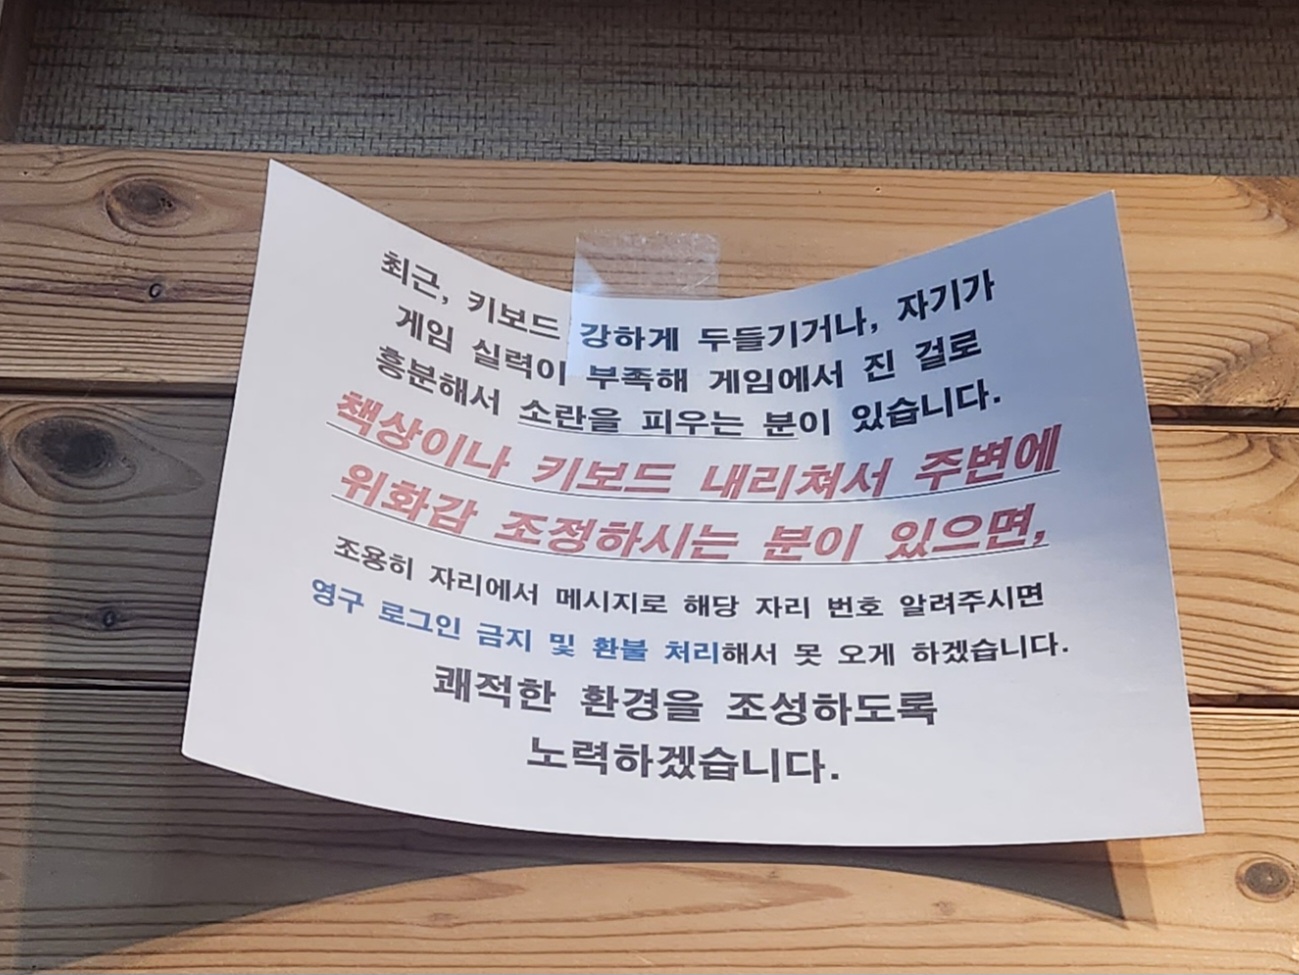 최근, 키보드 강하게 두들기거나, 자기가
게임 실력이 부족해 게임에서 진 걸로
흥분해서 소란을 피우는 분이 있습니다.
책상이나 키보드 내리쳐서 주변에
위화감 조정하시는 분이 있으면,
조용히 자리에서 메시지로 해당 자리 번호 알려주시면
영구 로그인 금지 및 환불 처리해서 못 오게 하겠습니다.
쾌적한 환경을 조성하도록
노력하겠습니다.